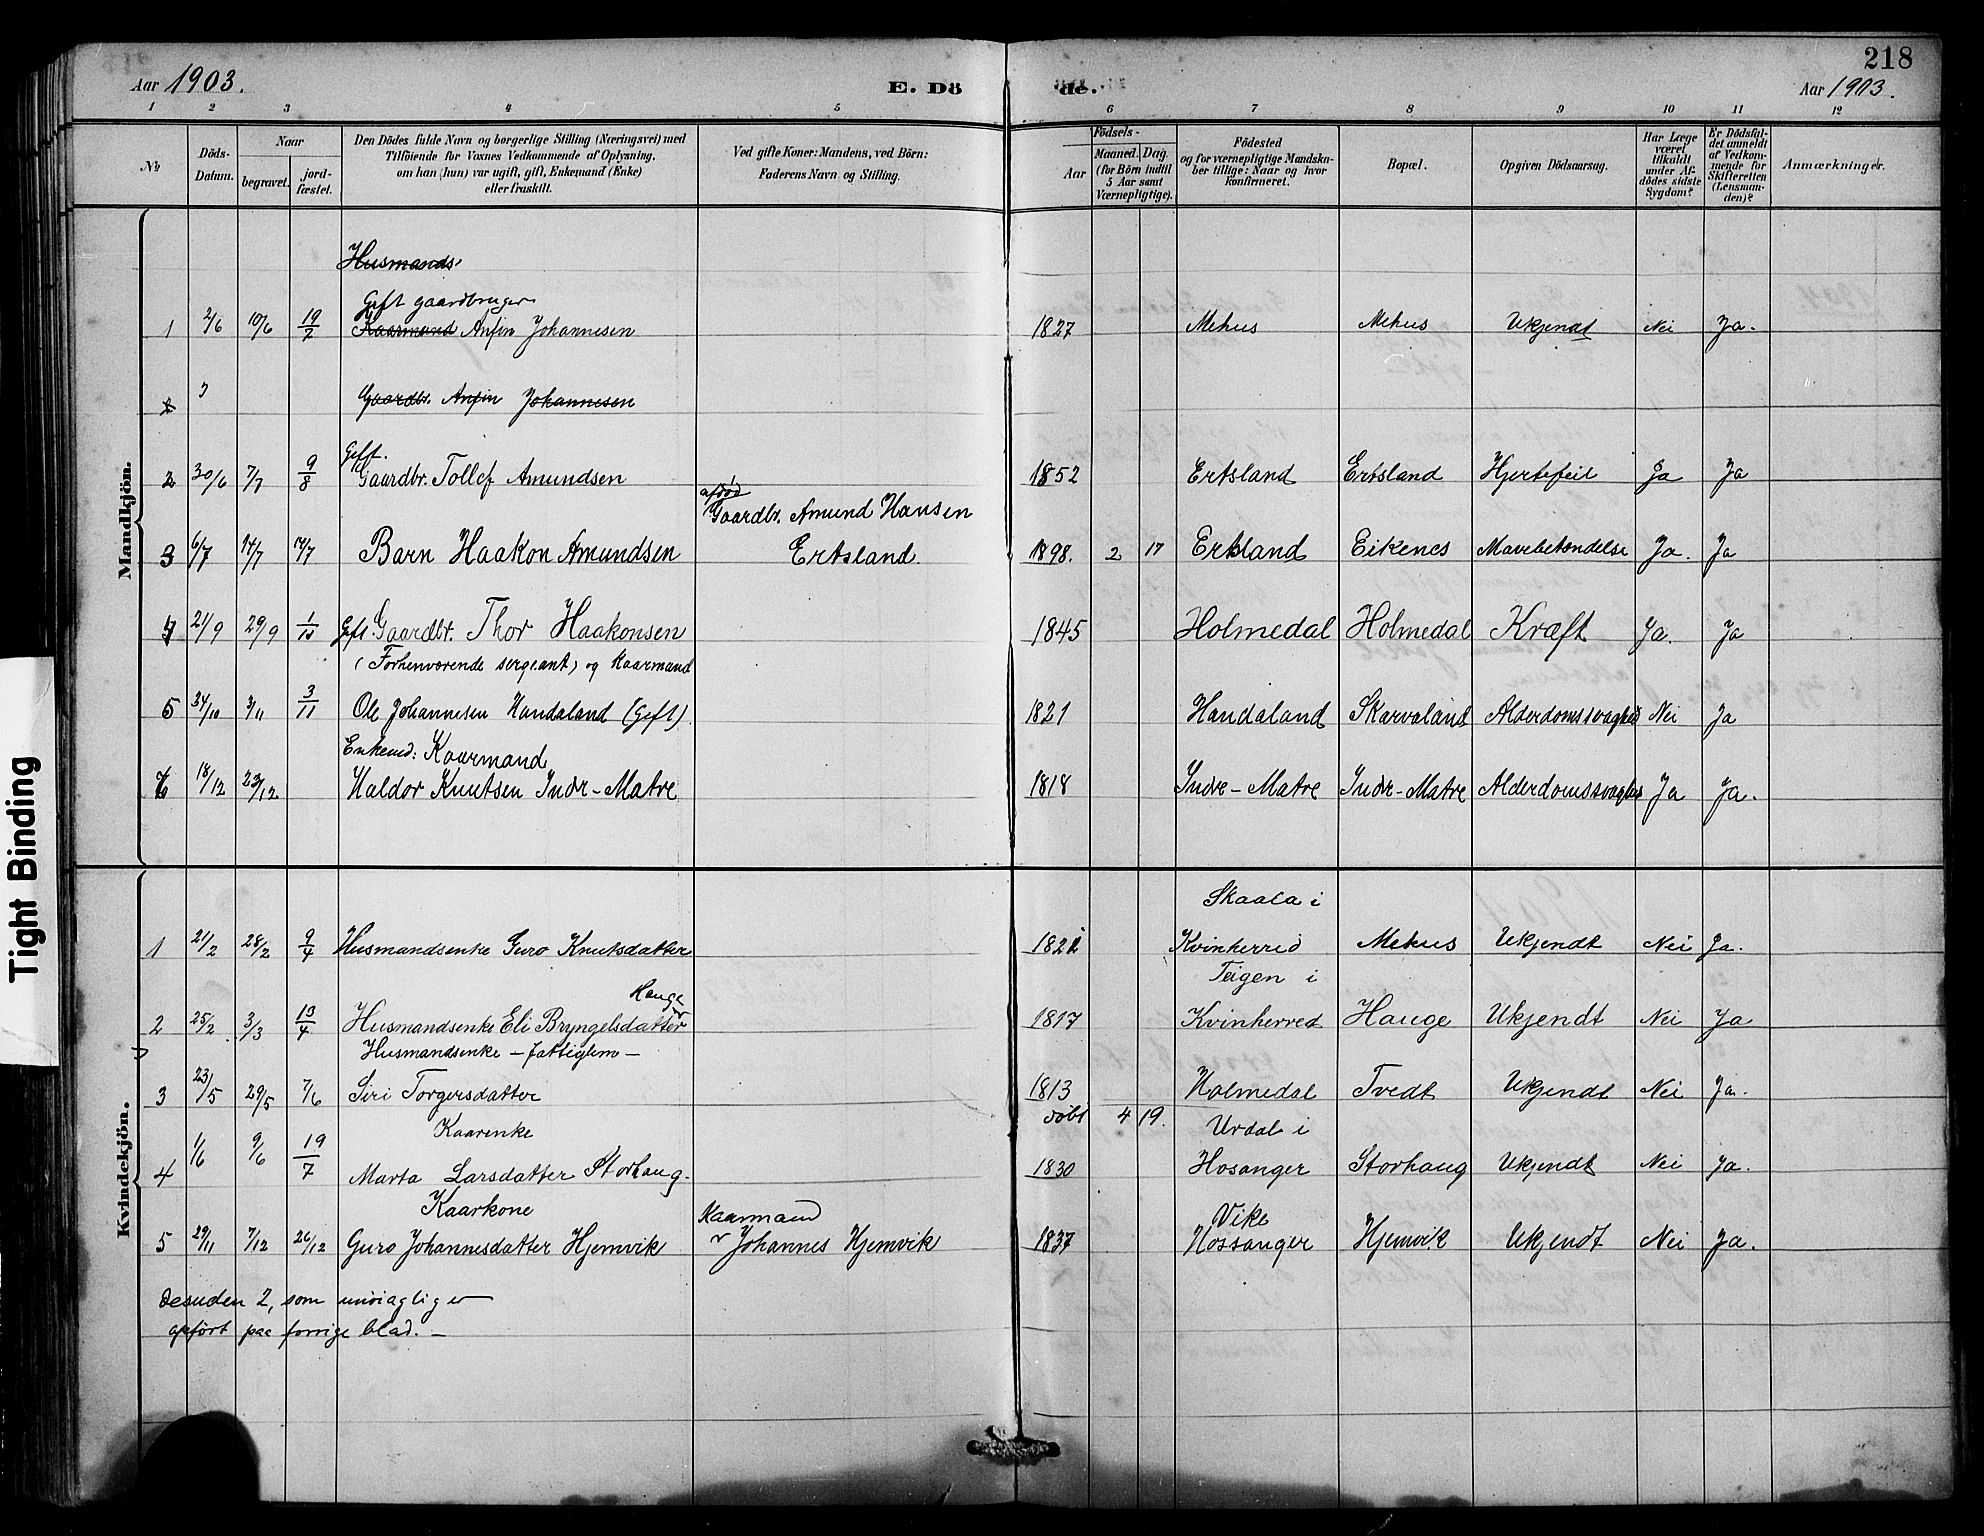 218
Aar 1903. E. Döde. Aar 1903.
1 2 3 4 5 6 7 8 9 10 11 12
№
Döds-Datum.
Naar
begravet.
jordfæstet.
Den Dödes fulde Navn og borgerlige Stilling (Næringsvei) med
Tilföiende for Voxnes Vedkommende af Oplysning,
om han (hun) var ugift, gift, Enkemand (Enke)
eller fraskilt.
Ved gifte Koner: Mandens, ved Börn:
Faderens Navn og Stilling.
Födsels-
Aar
Maaned. Dag.
(for Börn indtil
5 Aar samt
Værnepligtige).
Födested
og for værnepligtige Mandska-
ber tillige: Naar og hvor
konfirmeret.
Bopæl.
Opgiven Dödsaarsag.
Har Læge
været
tilkaldt
under Af-
dödes sidste
Sygdom?
Er Dödsfal-
det anmeldt
af Vedkom-
mende for
Skifteretten
(Lensman-
den)?
Anmærkninger.
Mandkjön.
Husmands
Gift gaardbruger
1 2/6 10/6 19/7 Kaarmand Anfin Johannesen 1827 Mehus Mehus Ukjendt Nei Ja.
Gaardbr. Anfin Johannesen
Gift.
2 30/6 7/7 9/8 Gaardbr. Tollef Amundsen 1852 Ertsland Ertsland Hjertefeil Ja Ja
afdød
Gaardbr. Amund Hansen
3 6/7 14/7 14/7 Barn Haakon Amundsen Ertsland. 1898. 2 17 Ertsland Eikenes Mavebetændelse Ja. Ja
4 21/9 29/9 1/10 Gift Gaardbr. Thor Haakonsen 1845 Holmedal Holmedal Kræft Ja. Ja
(Forhenværende sergeant) og Kaarmand
5 24/10 3/11 3/11 Ole Johannesen Handaland (Gift). 1821 Handaland Skarvaland Alderdomssvaghed Nei Ja
Enkemd: Kaarmand
6 18/12 23/12 Haldor Knutsen Indr-Matre 1818 Indre-Matre Indr-Matre Alderdomssvaghed Ja Ja.
Kvindekjön.
Skaala i
1 21/2 28/2 9/4 Husmandsenke Guro Knutsdatter 1821 Kvinherred Mehus Ukjendt Nei Ja.
Hauge Teigen i
2 25/2 3/3 13/4 Husmandsenke Eli Bryngelsdatter 1817 Kvinherred Hauge Ukjendt Nei Ja
Husmandsenke - fattiglem -
3 23/5 29/5 7/6 Siri Torgersdatter 1813 Holmedal Tvedt Ukjendt Nei Ja.
Kaarenke døbt 4 19. Urdal i
4 1/6 9/6 19/7 Marta Larsdatter Storhaug. 1830 Hosanger Storhaug Ukjendt Nei Ja.
Kaarkone Kaarmand Vike
5 29/11 7/12 26/12 Guro Johannesdatter Hjemvik Johannes Hjemvik 1837 Hossanger Hjemvik Ukjendt Nei Ja.
desuden 2, som unøiagtig er
opført paa forrige blad. -
Tight Binding